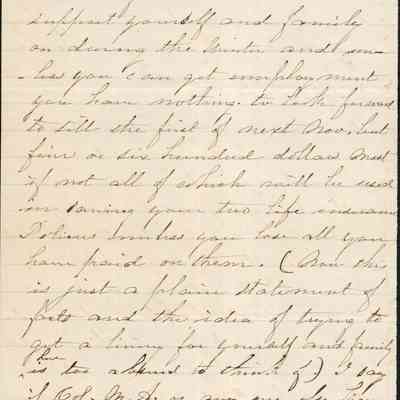 support yourself and family
on during the Winter and un-
-less you can get employment
you have nothing to look forward
to till the first of next Nov. but
five or six hundred dollars most
if not all of which will be used
in your two life insurance
Policies unless you lose all you
have paid on them. (Now this
is just a plain statement of
facts and the idea of trying to
get a living for yourself and family
here
is too absurd to think of) I say
if Col. M. or any one